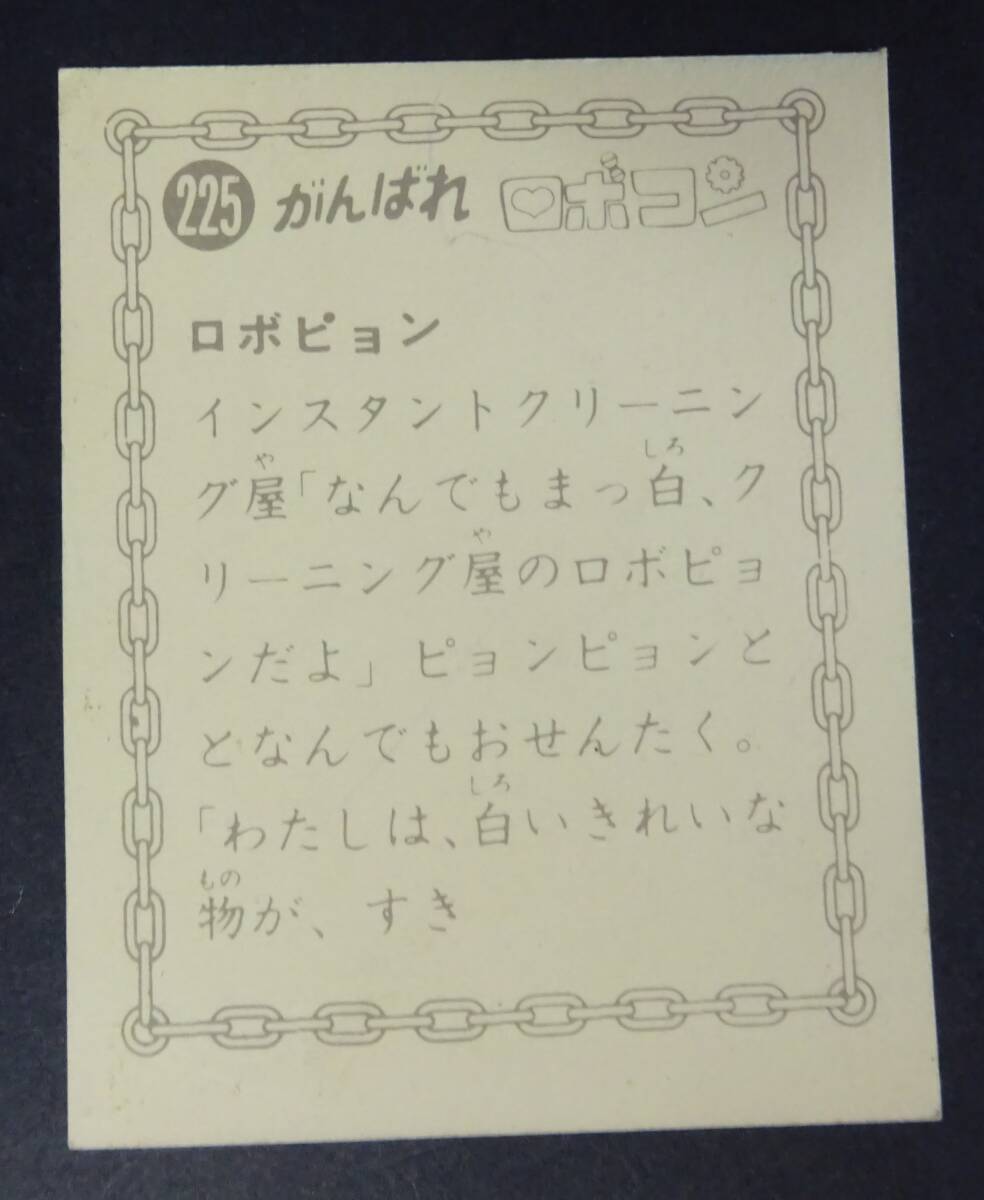 225 がんばれ ロボコン
ロボピョン
インスタントクリーニン
グ屋「なんでもまっ白、ク
リーニング屋のロボピョ
ンだよ」ピョンピョンと
となんでもおせんたく。
「わたしは、白いきれいな
物が、すき